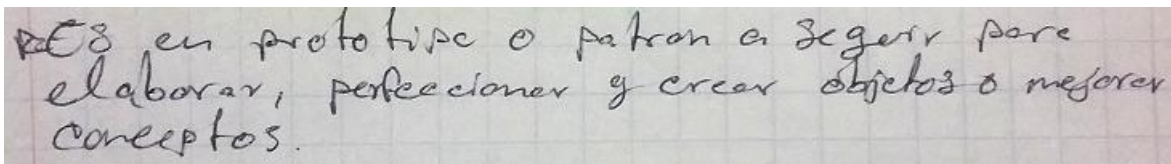 Es un prototipo o patron a seguir para
elaborar, perfeccionar y crear objetos o mejorar
conceptos.